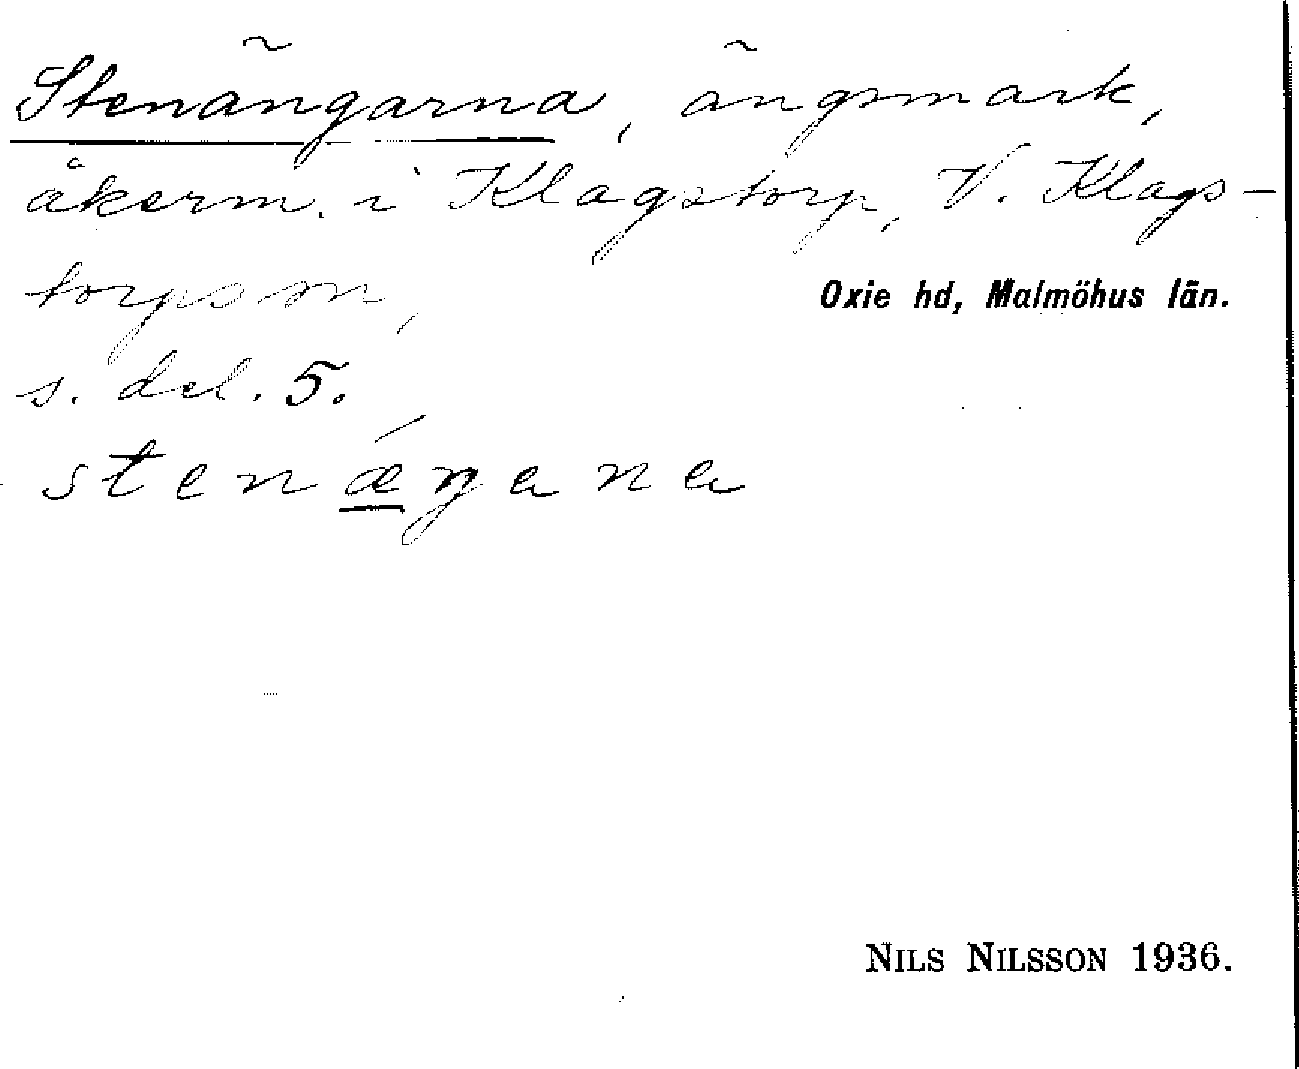 Stenängarna, ängsmark,
åkerm. i Klagstorp, V. Klags-
torps sn,
Oxie hd, Malmöhus län.
s. del. 5.
stenǽ̲ŋana
NILS NILSSON 1936.